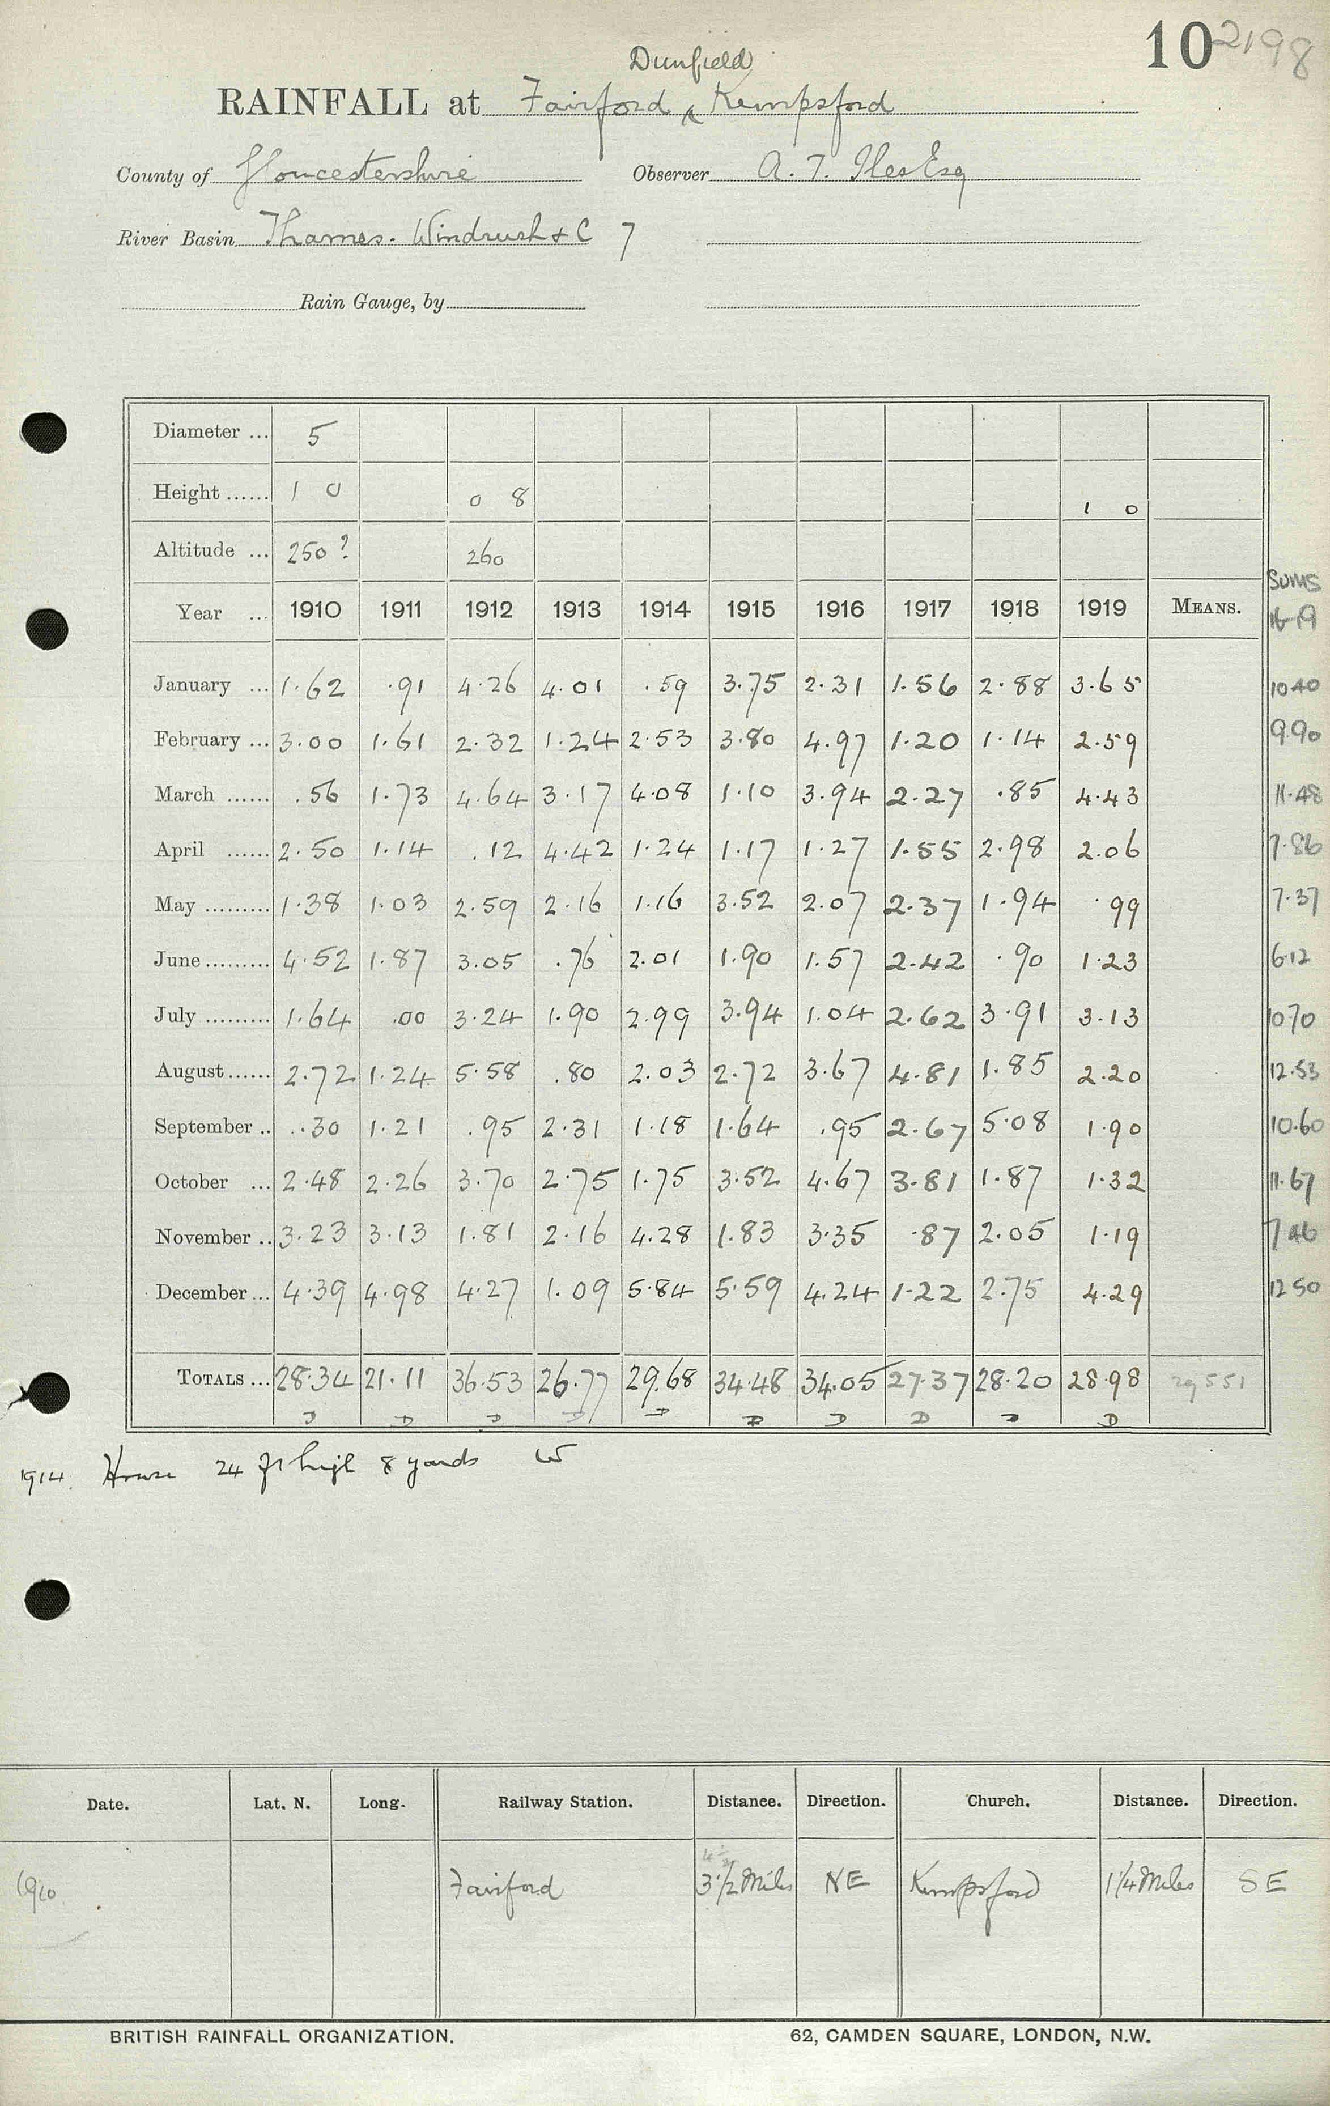 10 2198
Dunfield
RAINFALL at Fairford ^ Kempsford
County of Gloucestershire Observer A. T. Iles Esq
River Basin Thames. Windrush & C 7
Rain Gauge, by
Diameter ... 5
Height ...... 1 0 0 8 1 0
Altitude ... 250? 260
Sums
Year ... 1910 1911 1912 1913 1914 1915 1916 1917 1918 1919 MEANS. 16-19
January ... 1.62 .91 4.26 4.01 .59 3.75 2.31 1.56 2.88 3.65 1040
February ... 3.00 1.61 2.32 1.24 2.53 3.80 4.97 1.20 1.14 2.59 9.90
March ...... .56 1.73 4.64 3.17 4.08 1.10 3.94 2.27 .85 4.43 11.48
April ...... 2.50 1.14 .12 4.42 1.24 1.17 1.27 1.55 2.98 2.06 7.86
May ......... 1.38 1.03 2.59 2.16 1.16 3.52 2.07 2.37 1.94 .99 7.37
June ......... 4.52 1.87 3.05 .76 2.01 1.90 1.57 2.42 .90 1.23 612
July ......... 1.64 .00 3.24 1.90 2.99 3.94 1.04 2.62 3.91 3.13 1070
August ...... 2.72 1.24 5.58 .80 2.03 2.72 3.67 4.81 1.85 2.20 12.53
September .. .30 1.21 .95 2.31 1.18 1.64 .95 2.67 5.08 1.90 10.60
October ... 2.48 2.26 3.70 2.75 1.75 3.52 4.67 3.81 1.87 1.32 11.67
November .. 3.23 3.13 1.81 2.16 4.28 1.83 3.35 .87 2.05 1.19 746
December ... 4.39 4.98 4.27 1.09 5.84 5.59 4.24 1.22 2.75 4.29 1250
TOTALS ... 28.34 21.11 36.53 26.77 29.68 34.48 34.05 27.37 28.20 28.98 29551
D D D D D D D D D D
1914. House 24 ft high 8 yards W
Date. Lat. N. Long. Railway Station. Distance. Direction. Church. Distance. Direction.
1910. Fairford 3 1/2 Miles NE Kempsford 1 1/4 Miles SE
BRITISH RAINFALL ORGANIZATION. 62, CAMDEN SQUARE, LONDON, N.W.